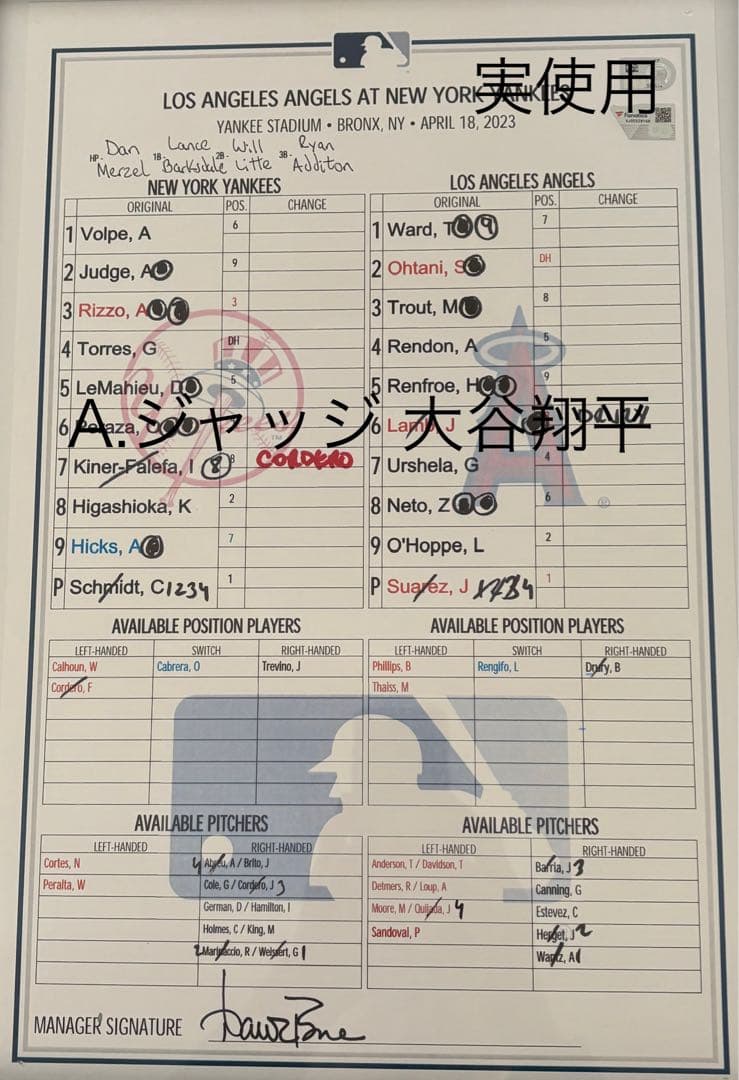 実使用
LOS ANGELES ANGELS AT NEW YORK YANKEES
YANKEE STADIUM • BRONX, NY • APRIL 18, 2023
Dan Lance Will Ryan
HP- Merzel 1B- Barksdale 2B- Little 3B- Additon
NEW YORK YANKEES
ORIGINAL POS. CHANGE
1 Volpe, A 6
2 Judge, A 9
3 Rizzo, A 3
4 Torres, G DH
5 LeMahieu, D 5
6 Peraza, O
7 Kiner-Falefa, I 8 8 CORDERO
8 Higashioka, K 2
9 Hicks, A 7
P Schmidt, C 1234 1
LOS ANGELES ANGELS
ORIGINAL POS. CHANGE
1 Ward, T 9 7
2 Ohtani, S DH
3 Trout, M 8
4 Rendon, A 5
5 Renfroe, H 9
6 Lamb, J
7 Urshela, G 4
8 Neto, Z 6
9 O'Hoppe, L 2
P Suarez, J 1
A.ジャッジ 大谷翔平
AVAILABLE POSITION PLAYERS
LEFT-HANDED SWITCH RIGHT-HANDED
Calhoun, W Cabrera, O Trevino, J
Cordero, F
AVAILABLE POSITION PLAYERS
LEFT-HANDED SWITCH RIGHT-HANDED
Phillips, B Rengifo, L Drury, B
Thaiss, M
AVAILABLE PITCHERS
LEFT-HANDED RIGHT-HANDED
Cortes, N 4 Abreu, A / Brito, J
Peralta, W Cole, G / Cordero, J 3
German, D / Hamilton, I
Holmes, C / King, M
2 Marinaccio, R / Weissert, G 1
AVAILABLE PITCHERS
LEFT-HANDED RIGHT-HANDED
Anderson, T / Davidson, T Barria, J 3
Detmers, R / Loup, A Canning, G
Moore, M / Quijada, J 4 Estevez, C
Sandoval, P Herget, J 2
Wantz, A 1
MANAGER SIGNATURE